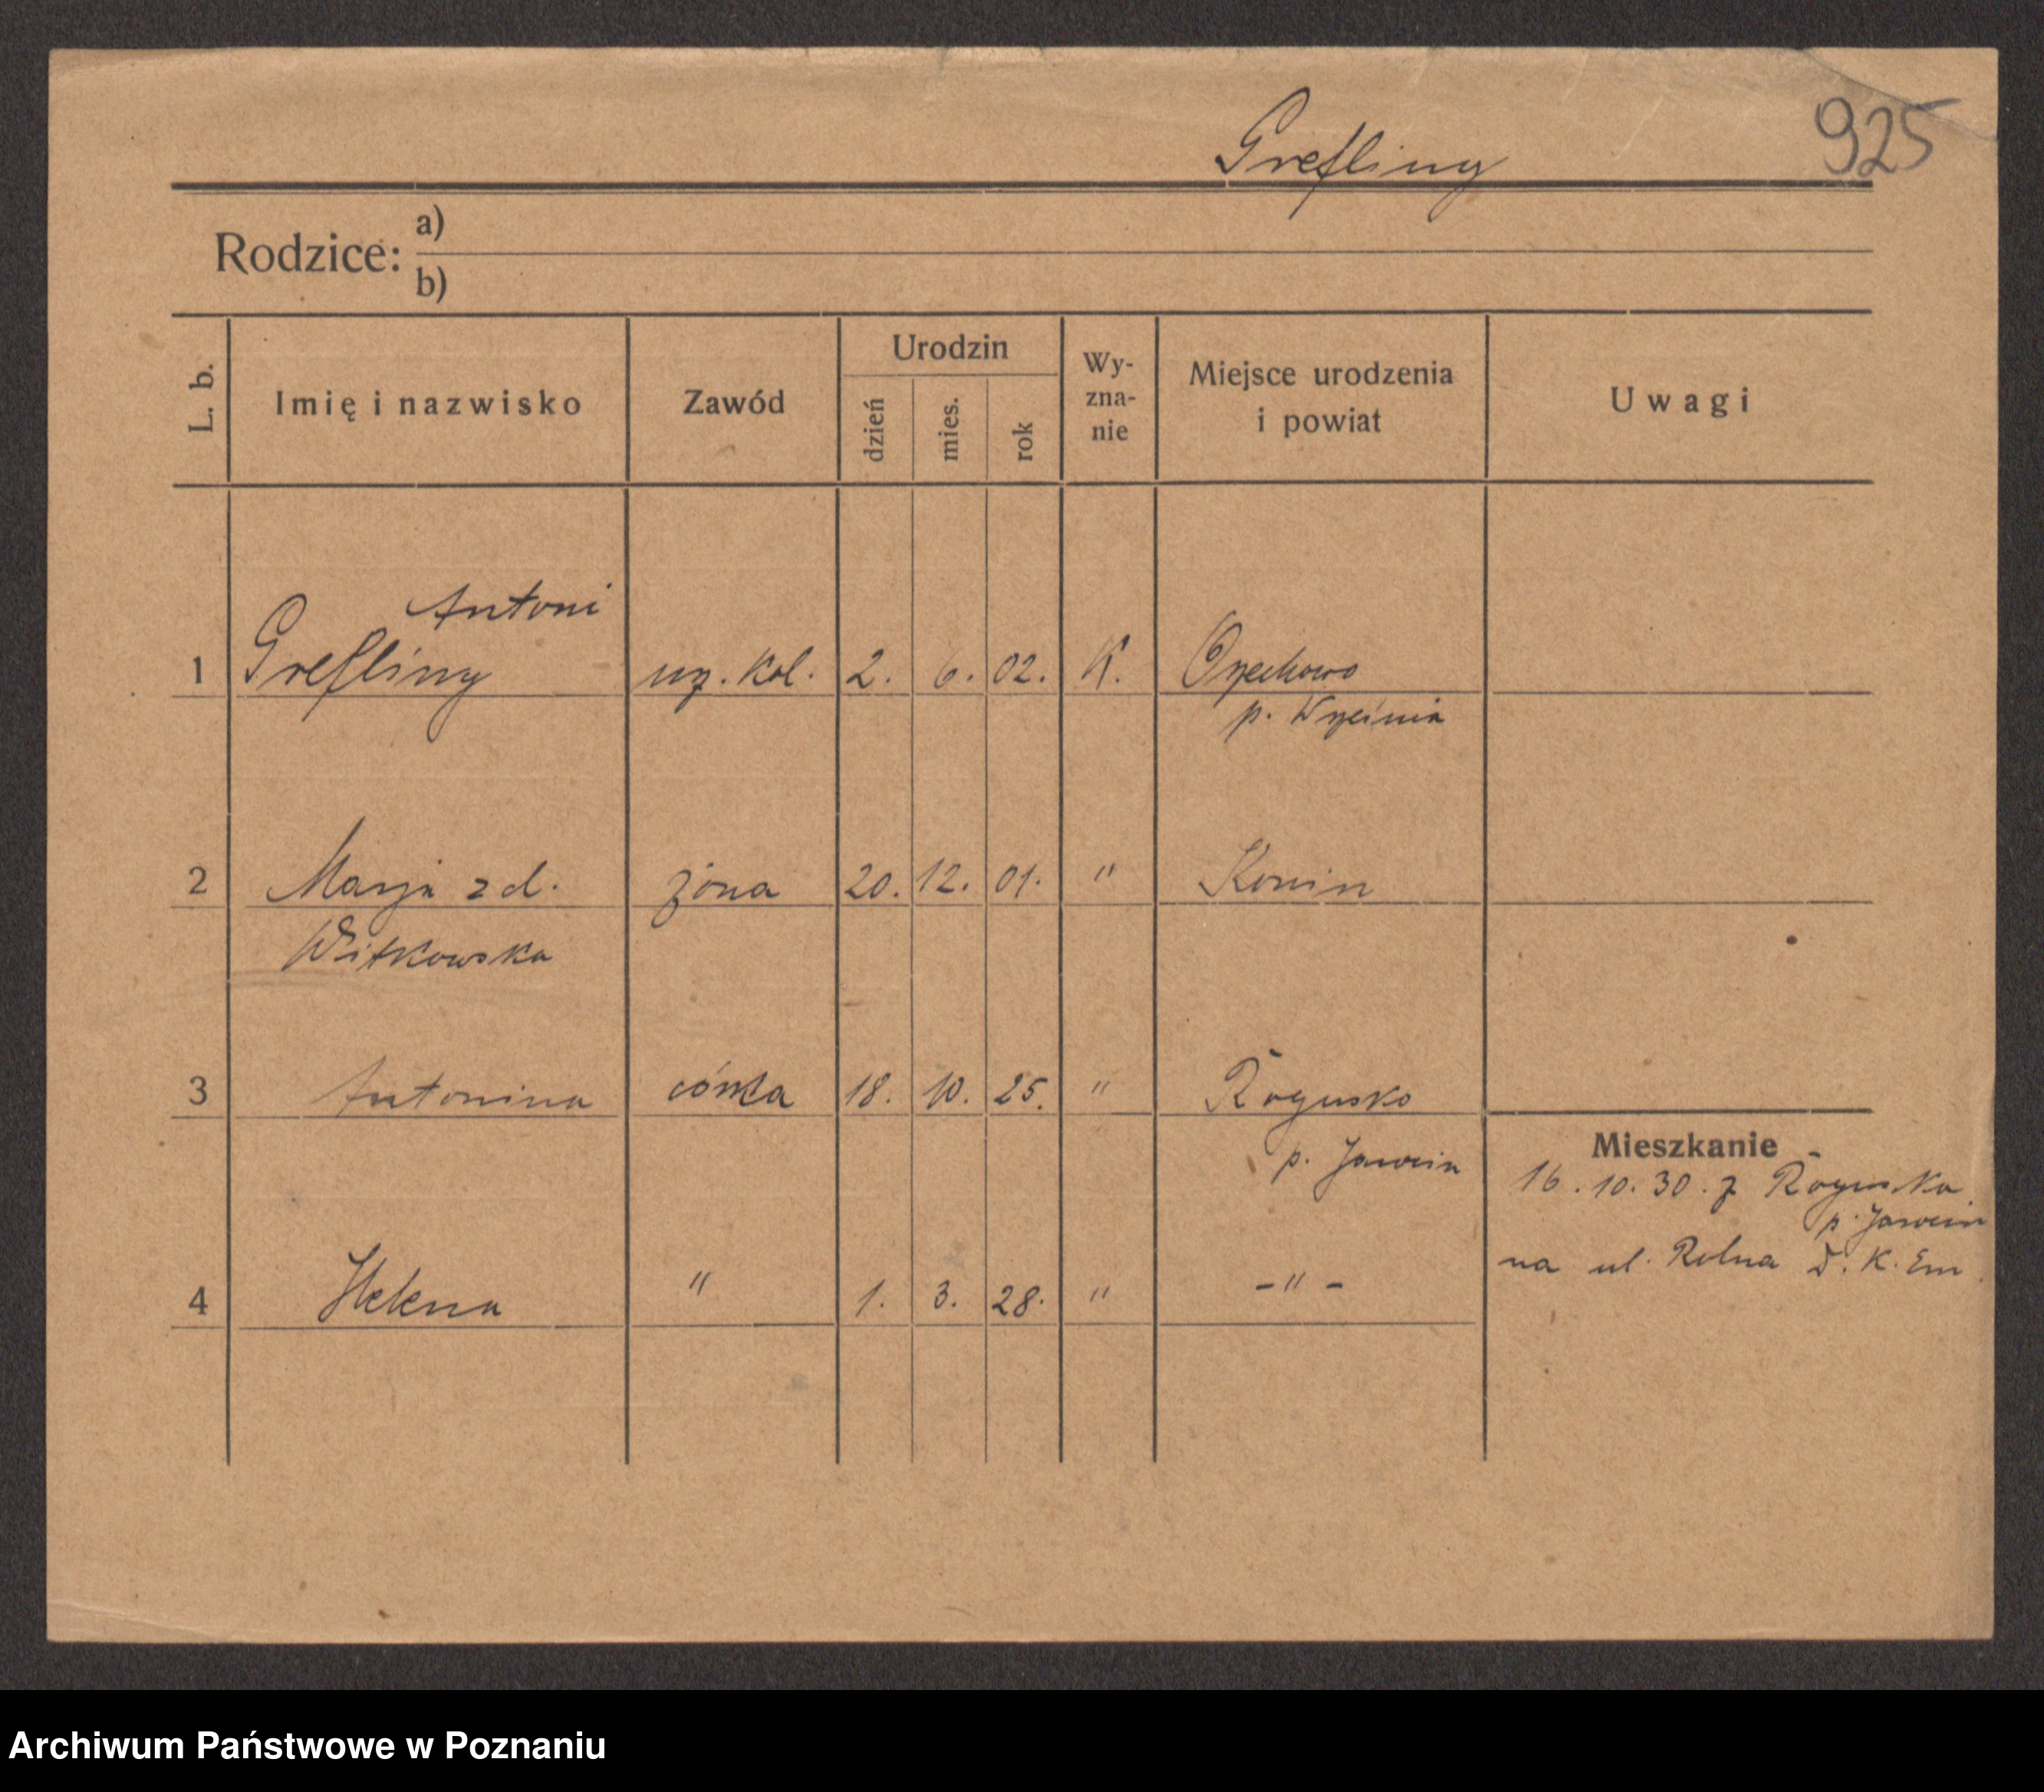 Grefling
925
Rodzice:
a)
b)
L. b.
Imię i nazwisko
Zawód
Urodzin
dzień
mies.
rok
Wy-
zna-
nie
Miejsce urodzenia
i powiat
Uwagi
Antoni
1 Grefling urz. kol. 2. 6. 02. K. Orzechowo
p. Września
2 Marja z d. żona 20. 12. 01. " Konin
Witkowska
3 Antonina córka 18. 10. 25. " Rogusko
p. Jarocin
Mieszkanie
16. 10. 30. z Roguska
p. Jarocin
na ul. Rolna D. K. Em.
4 Helena " 1. 3. 28. " -"-
Archiwum Państwowe w Poznaniu